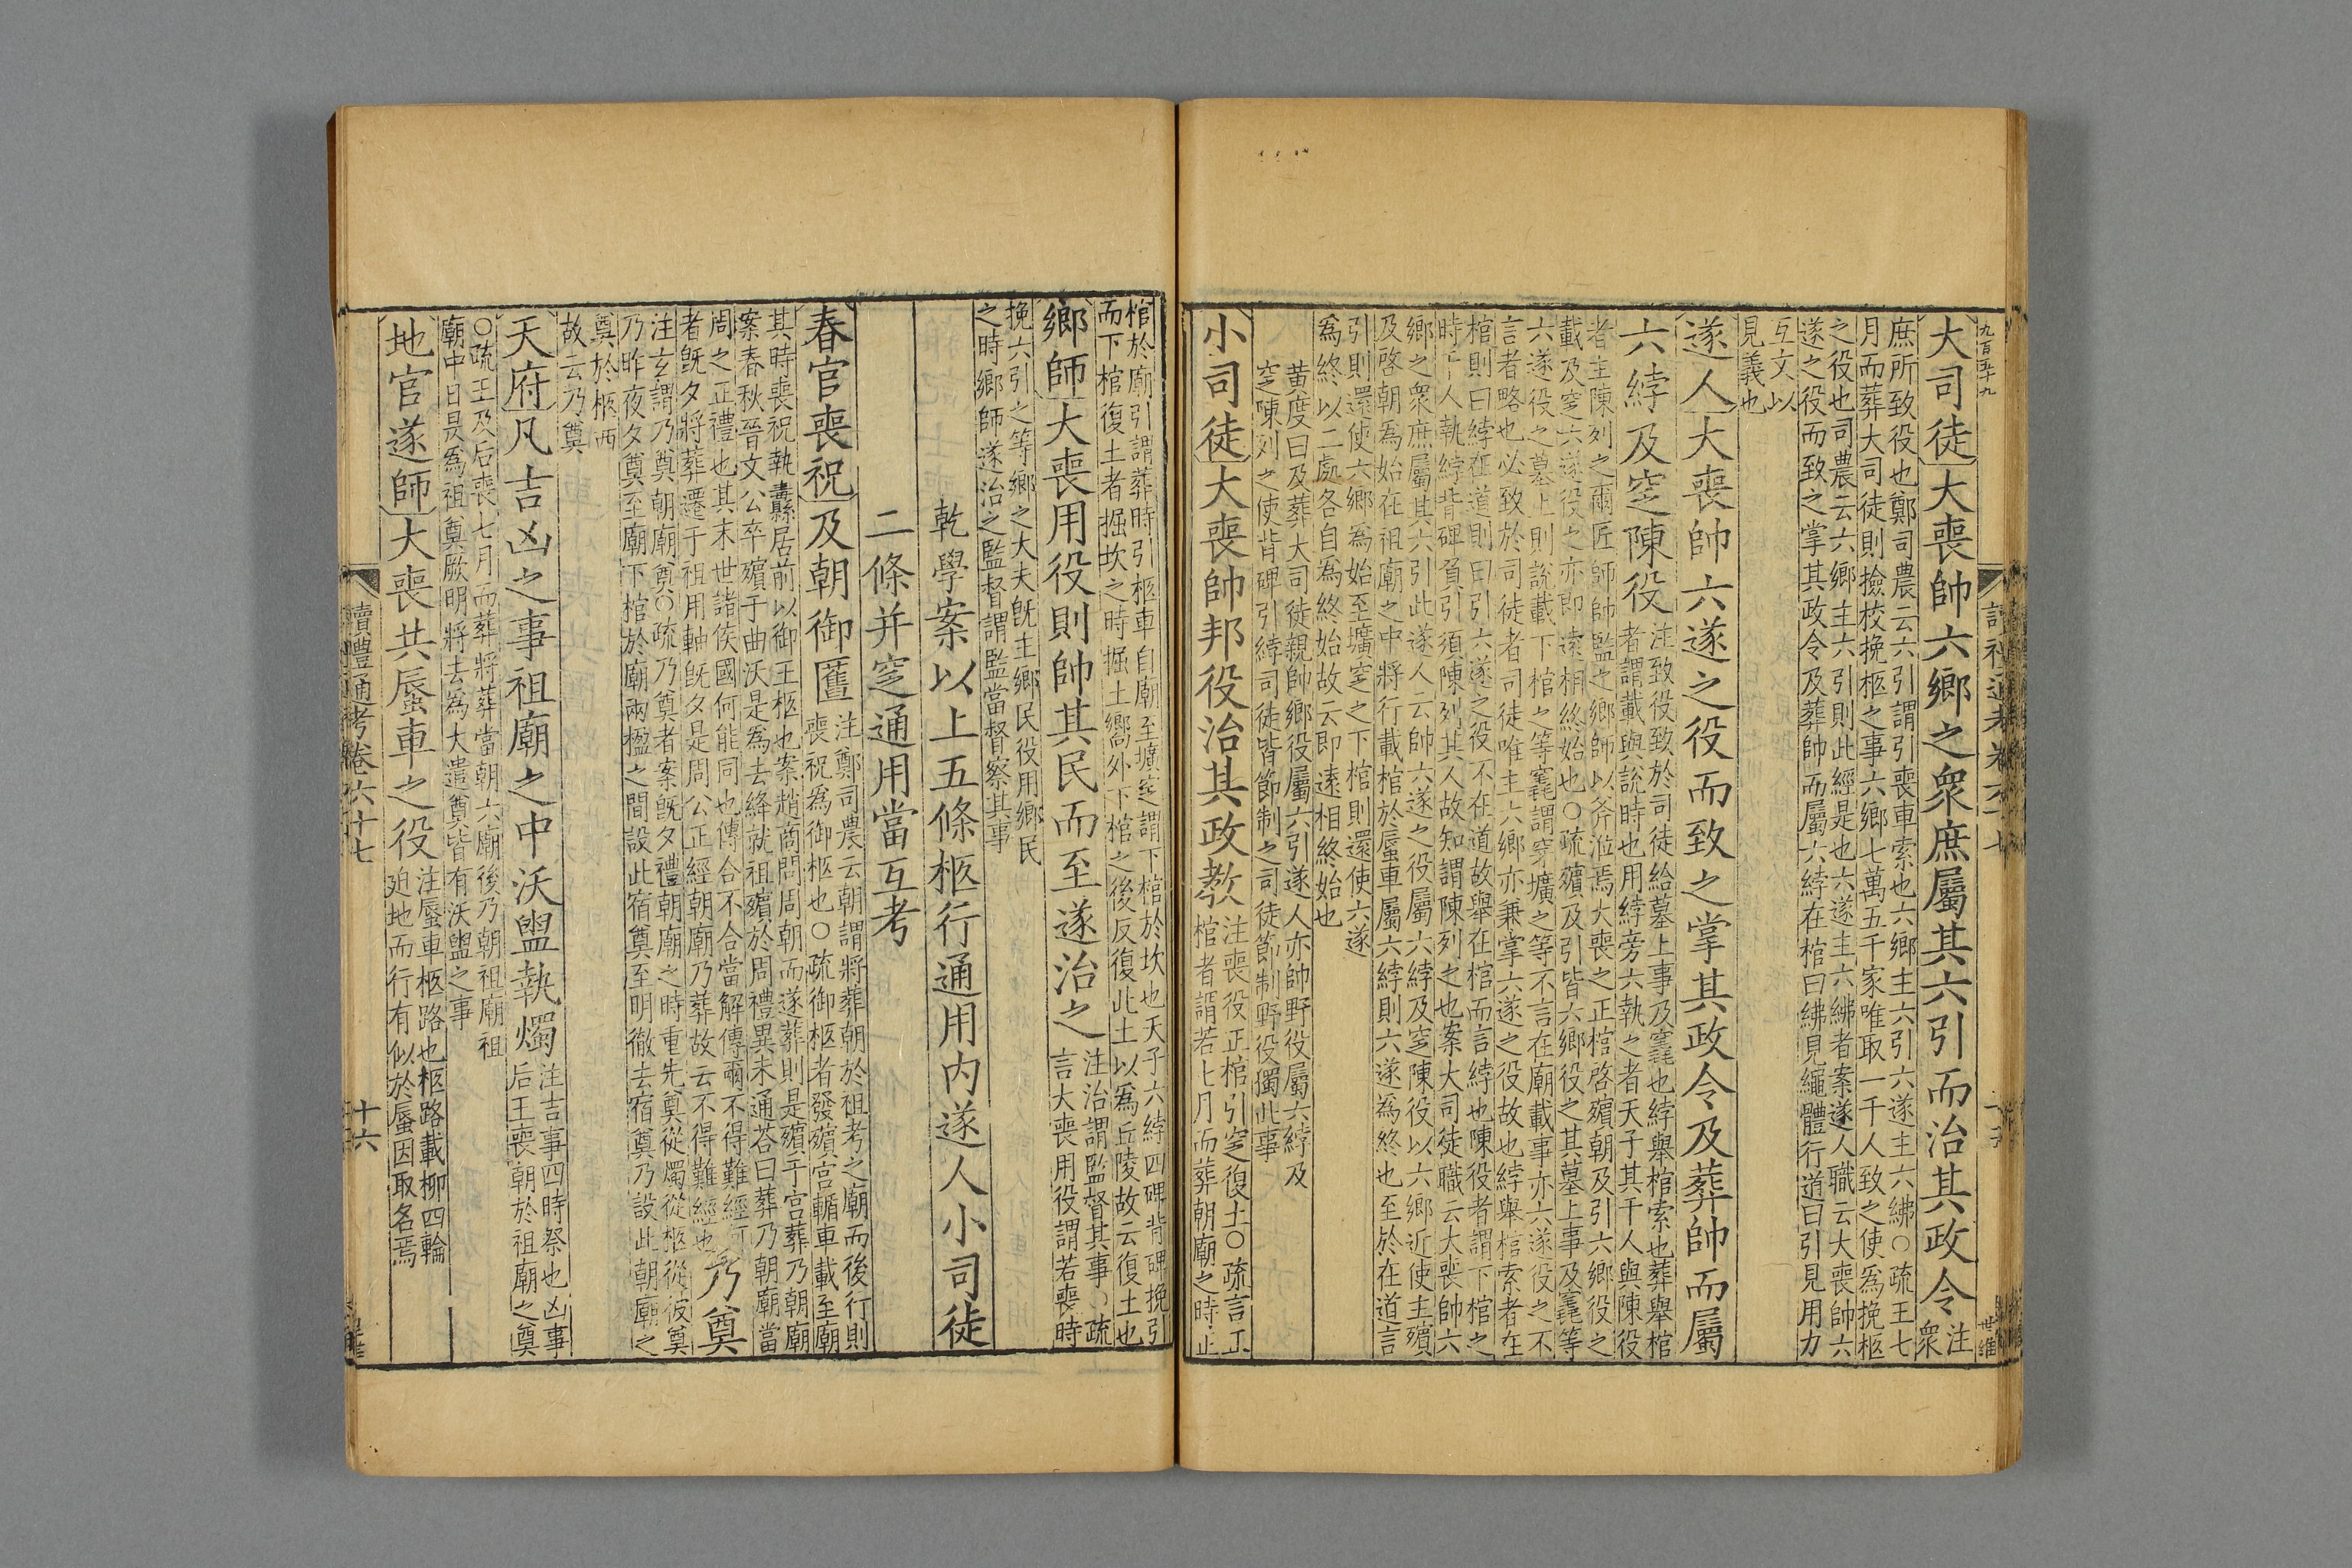 九百五十九
大司徒大喪帥六鄉之衆庶屬其六引而治其政令注衆
庶所致役也鄭司農云六引謂引喪車索也六鄉主六引六遂主六紼○疏王七
月而葬大司徒則撿校挽柩之事六鄉七萬五千家唯取一千人致之使爲挽柩
之役也司農云六鄉主六引則此經是也六遂主六紼者案遂人職云大喪帥六
遂之役而致之掌其政令及葬帥而屬六綍在棺曰紼見繩體行道曰引見用力
互文以
見義也
遂人大喪帥六遂之役而致之掌其政令及葬帥而屬
六綍及窆陳役
注致役致於司徒給墓上事及竁也綍舉棺索也葬舉棺
者謂載與說時也用綍旁六執之者天子其千人與陳役
者主陳列之爾匠師帥監之鄉師以斧涖焉大喪之正棺啓殯朝及引六鄉役之
載及窆六遂役之亦即遠相終始也○疏殯及引皆六鄉役之其墓上事及竁等
六遂役之墓上則說載下棺之等竁謂穿壙之等不言在廟載事亦六遂役之不
言者略也必致於司徒者司徒唯主六鄉亦兼掌六遂之役故也綍舉棺索者在
棺則曰綍在道則曰引六遂之役不在道故舉在棺而言綍也陳役者謂下棺之
時千人執綍背碑負引須陳列其人故知謂陳列之也案大司徒職云大喪帥六
鄉之衆庶屬其六引此遂人云帥六遂之役屬六綍及窆陳役以六鄉近使主殯
及啓朝爲始在祖廟之中將行載棺於蜃車屬六綍則六遂爲終也至於在道言
引則還使六鄉爲始至壙窆之下棺則還使六遂
爲終以二處各自爲終始故云即遠相終始也
黄度曰及葬大司徒親帥鄉役屬六引遂人亦帥野役屬六綍及
窆陳列之使背碑引綍司徒皆節制之司徒節制野役獨此事
小司徒大喪帥邦役治其政教
注喪役正棺引窆復土○疏言正
棺者謂若七月而葬朝廟之時正
棺於廟引謂葬時引柩車自廟至壙窆謂下棺於坎也天子六綍四碑背碑挽引
而下棺復土者掘坎之時掘土嚮外下棺之後反復此土以爲丘陵故云復土也
鄉師大喪用役則帥其民而至遂治之
注治謂監督其事○疏
言大喪用役謂若喪時
挽六引之等鄉之大夫旣主鄉民役用鄉民
之時鄉師遂治之監督謂監當督察其事
乾學案以上五條柩行通用内遂人小司徒
二條并窆通用當互考
春官喪祝及朝御匶
注鄭司農云朝謂將葬朝於祖考之廟而後行則
喪祝爲御柩也○疏御柩者發殯宫輴車載至廟
其時喪祝執纛居前以御王柩也案趙商問周朝而遂葬則是殯于宫葬乃朝廟
案春秋晉文公卒殯于曲沃是爲去絳就祖殯於周禮異未通荅曰葬乃朝廟當
周之正禮也其末世諸侯國何能同也傳合不合當解傳爾不得難經
者旣夕將葬遷于祖用軸旣夕是周公正經朝廟乃葬故云不得難經也
乃奠
注玄謂乃奠朝廟奠○疏乃奠者案旣夕禮朝廟之時重先奠從燭從柩從彼奠
乃昨夜夕奠至廟下棺於廟兩楹之間設此宿奠至明徹去宿奠乃設此朝廟之
奠於柩西
故云乃奠
天府凡吉凶之事祖廟之中沃盥執燭
注吉事四時祭也凶事
后王喪朝於祖廟之奠
○疏王及后喪七月而葬將葬當朝六廟後乃朝祖廟祖
廟中日昃爲祖奠厥明將去爲大遣奠皆有沃盥之事
地官遂師大喪共蜃車之役
注蜃車柩路也柩路載柳四輪
廹地而行有似於蜃因取名焉
讀禮通考卷六十七
十六